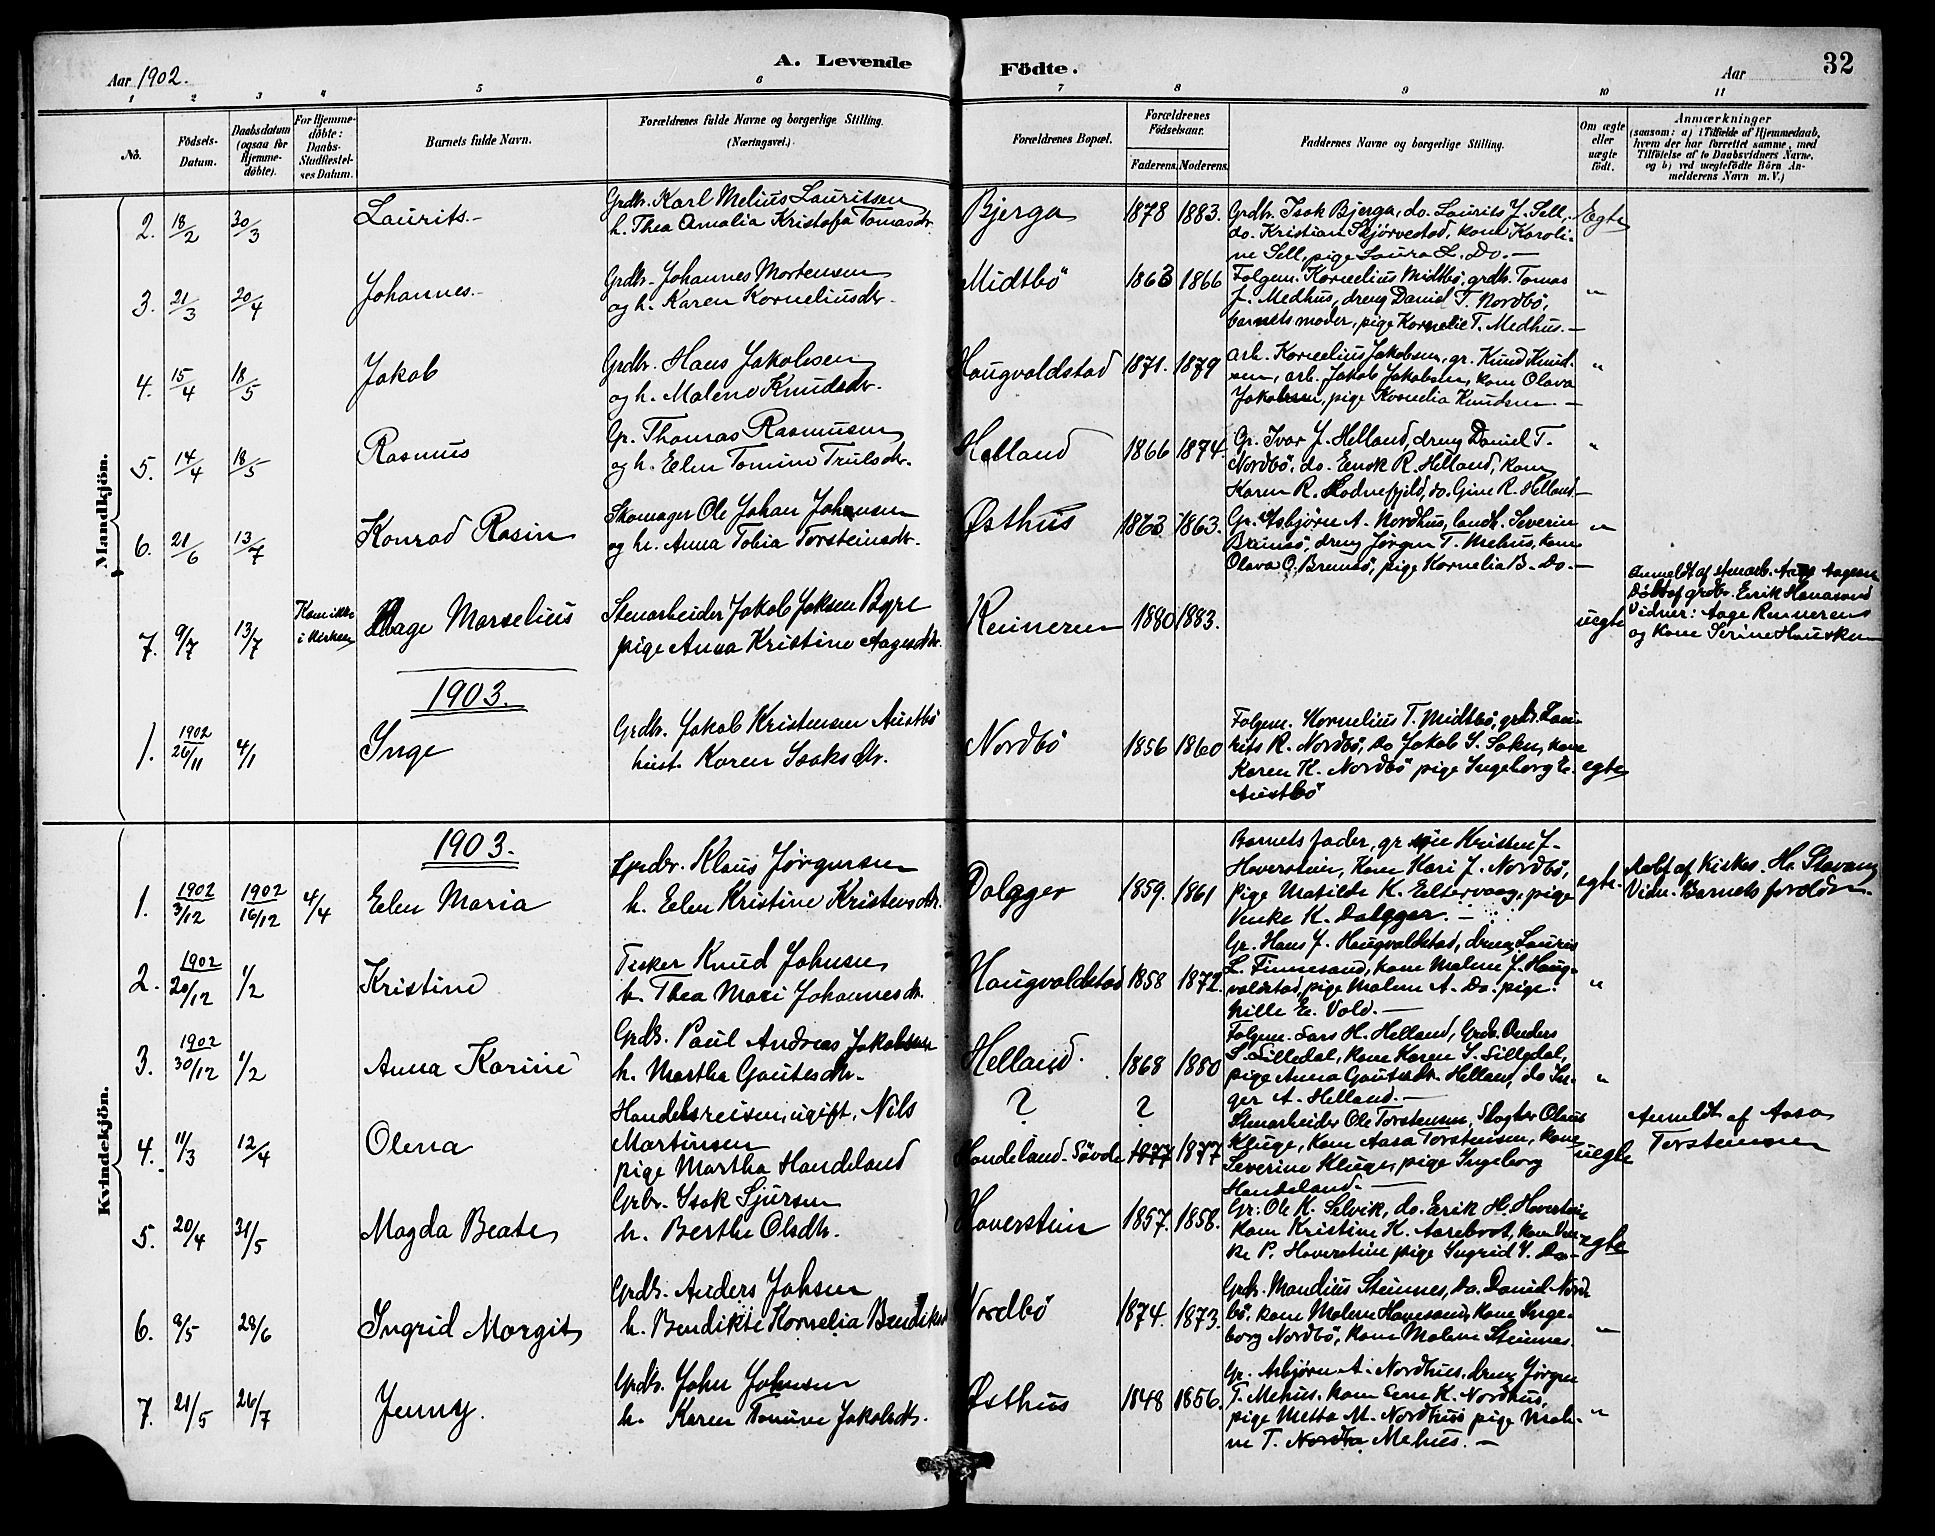 Aar 1902.
A. Levende Födte.
Aar
32
1 2 3 4 5 6 7 8 9 10 11
No.
Födsels-Datum.
Daabsdatum (ogsaa for Hjemme-døbte).
For Hjemme-døbte: Daabs-Stadfæstel-ses Datum.
Barnets fulde Navn.
Forældrenes fulde Navne og borgerlige Stilling. (Næringsvei.)
Forældrenes Bopæl.
Forældrenes Födselsaar.
Faderens. Moderens.
Faddernes Navne og borgerlige Stilling.
Om ægte eller uægte født.
Anmærkninger
(saasom: a) i Tilfælde af Hjemmedaab, hvem der har forrettet samme, med Tilföielse af to Daabsvidners Navne, og b) ved uægtefödte Börn An-melderens Navn m. V.)
Mandkjön.
2. 18/2 30/3 Laurits.-
Grdb. Karl Melius Lauritsen
h. Thea Amalia Kristofa Tomasdr.
Bjerga 1878 1883.
Grdb. Isak Bjerga, do. Laurits J. Sell,
do. Kristian Skjörvestad, kone Karoli-
ne Sell, pige Laura L. Do.-
Egte
3. 21/3 20/4 Johannes.-
Grdb. Johannes Mortensen
og h. Karen Korneliusdr.
Midtbö 1863 1866
Folgem. Kornelius Midtbö, grdb. Tomas
J. Medhus, dreng Daniel T. Nordbö,
barnets moder, pige Kornelie T. Medhus.-
"
4. 15/4 18/5 Jakob
Grdbr. Hans Jakobsen
og h. Malene Knudsdr.
Haugvaldstad 1871. 1879
arb. Kornelius Jakobsen, gr. Knud Knud-
sen, arb. Jakob Jakobsen, kone Olava
Jakobsen, pige Kornelia Knudsen.-
"
5. 14/4 18/5 Rasmus
Gr. Thomas Rasmusen
og h. Elen Tomine Trulsdr.
Helland 1866 1874.
Gr. Ivar J. Helland, dreng Daniel T.
Nordbö, do. Enok R. Helland, kone
Karen R. Lodnefjeld, do. Gine R. Helland-
"
6. 21/6 13/7 Konrad Rasin
Skomager Ole Johan Johansen
og h. Anna Tobia Torsteinsdr.
Østhus 1863 1863.
Gr. Asbjørn A. Nordhus, landh. Severin
Brimsö, dreng Jørgen T. Mehus, kone
Olava O. Brimsö, pige Kornelia B. Do.-
"
7. 9/7 13/7 Kom ikke i kirken
Aage Marselius
Stenarbeider Jakob Jaksen Byre
pige Anna Kristine Aagesdtr.
Renneren 1880 1883.
uegte
Anmeldt af stenarb. Aage Aagesen
Döbt af grdbr. Erik Hanasand
Vidner: Aage Renneren
og kone Serine Hausken
1903.
1. 1902 26/11 4/1 Inge
Grdb. Jakob Kristensen Austbö
hust. Karen Isaksdr.
Nordbö 1856 1860
Folgem. Kornelius T. Midtbö, grdr. Lau-
rits R. Nordbö, do Jakob S. Sokn, kone
Karen H. Nordbö pige Ingeborg E.
Austbö
egte
Kvindekjön.
1903.
1. 1902 3/12 1902 16/12 4/4 Elen Maria
Grdbr. Klaus Jørgensen
h. Elen Kristine Kristensdtr.
Dalgger 1859. 1861
Barnets fader, gr Kristen J.
Haverstein, Kone Kari J. Nordbö,
pige Matilde K. Eltervaag, pige
Venke K. Dalgger.-
egte.
Vidn. Barnets foreldre.
2. 1902 20/12 1/2 Kristine
Fisker Knud Johnsen
h. Thea Mari Johannesdr.
Haugvaldstad 1858 1872.
Gr. Hans J. Haugvaldstad, dreng Lauris
L. Finnesand, kone Malene J. Haug-
valdstad, pige Malene A. Do. pige
Nille E. Vold.-
"
3. 1902 30/12 1/2 Anna Karine
Grdb. Paul Andreas Jakobsen
h. Martha Gautesdtr.
Helland. 1868 1880
Folgem. Lars H. Helland, Grdb. Anders
S. Lilledal, kone Karen S. Lilledal,
pige Anna Gautesdr. Helland, do In-
ger A. Helland.-
"
4. 11/3 12/4 Olena
Handelsreisen, ugift, Nils
Martinsen
pige Martha Handeland
? ?
Handeland-Sövde 1877 1877
Stenarbeider Ole Torstensen, Slagter Olaus
Kluge, kone Aasa Torstensen, kone
Severine Kluge, pige Ingeborg
Handeland.-
uegte
Anmeldt af Aasa
Torstensen
5. 20/4 31/5 Magda Beate
Grbr. Isak Sjursen
h. Berthe Olsdtr.
Haverstein 1857. 1858.
Gr. Ole K. Selvik, do. Erik H. Haverstein
kone Kristine H. Aarebrot, kone Ven-
ke P. Haverstein pige Ingrid V. Do-
egte
6. 9/5 28/6 Ingrid Margit
Grdb. Anders Johsen
h. Bendikte Kornelia Bendiksd
Nordbö 1874. 1873.
Grdb. Mandius Steinnes, do. Daniel Nord
bö, kone Malene Hanesand, kone Inge-
borg Nordbö, kone Malene Steinnes.
"
7. 21/5 26/7 Jenny.
Grdb. John Johnsen
h. Karen Tomine Jakobsdtr.
Østhus 1848 1856.
Gr. Asbjørn A. Nordhus, dreng Jørgen
T. Mehus, kone Erne K. Nordhus,
pige Metta M. Nordhus pige Male-
ne T. Mehus.-
"